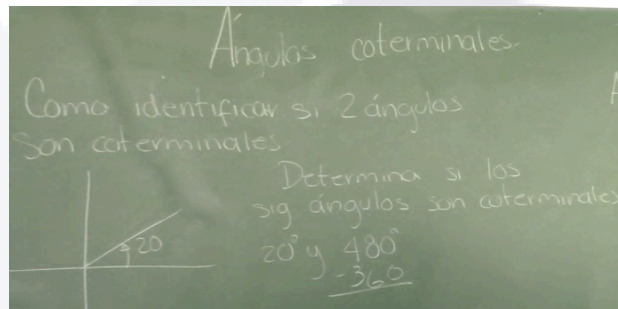 Ángulos coterminales.
Como identificar si 2 ángulos
son coterminales
Determina si los
sig ángulos son coterminales
20° y 480°
-360
20
A